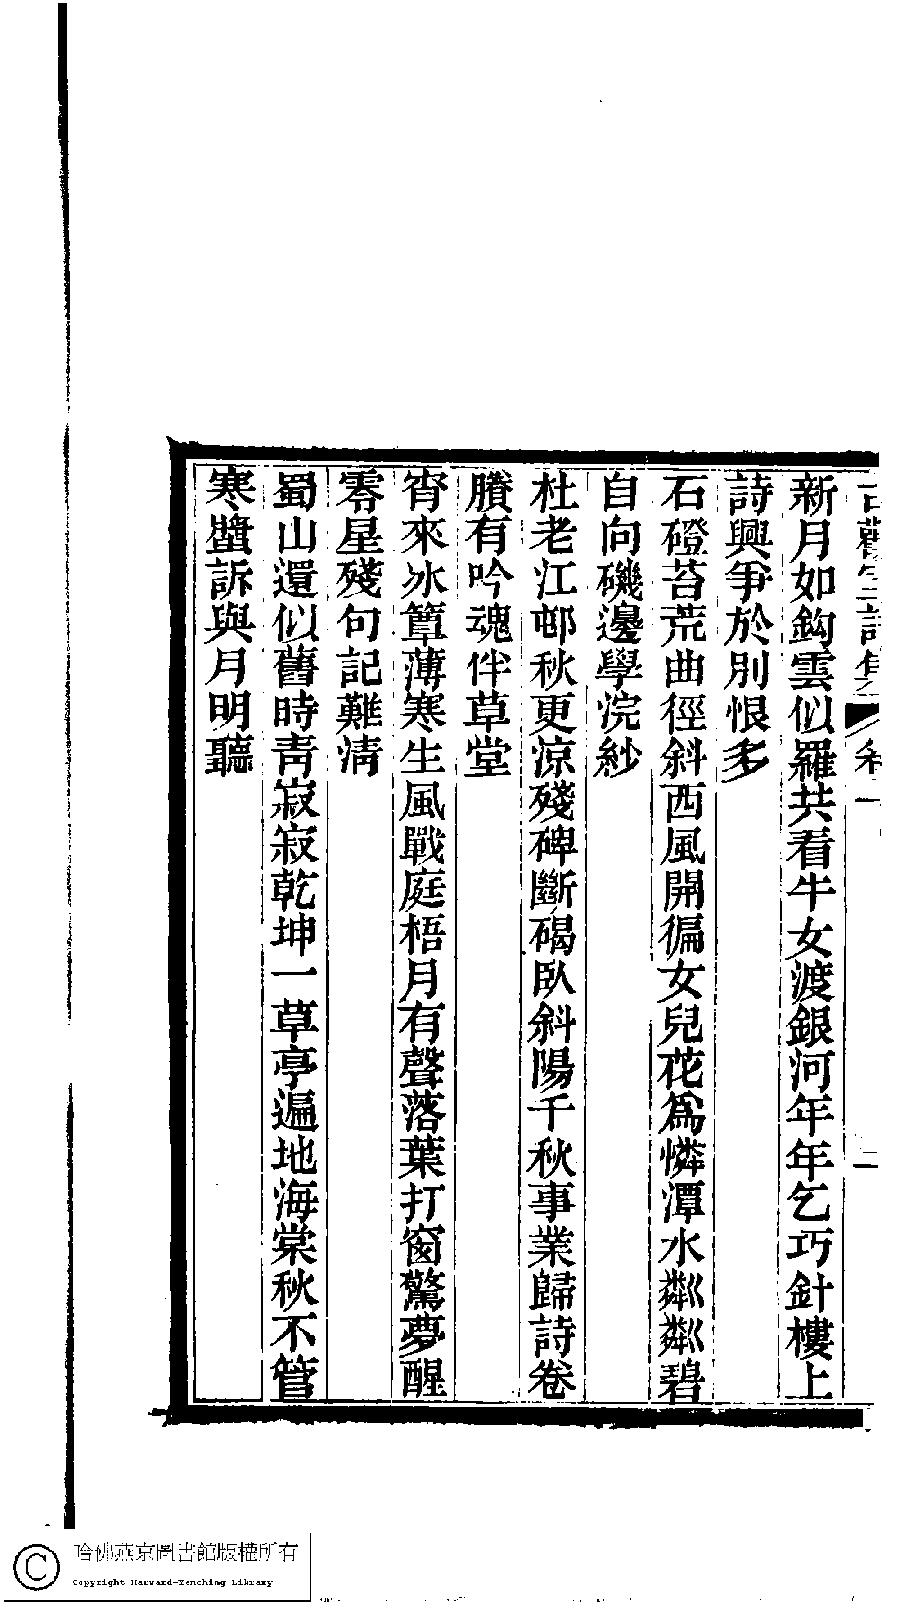 古歡室詩集 卷一 二
新月如鈎雲似羅共看牛女渡銀河年年乞巧針樓上
詩興爭於別恨多
石磴苔荒曲徑斜西風開徧女兒花爲憐潭水粼粼碧
自向磯邊學浣紗
杜老江邨秋更涼殘碑斷碣臥斜陽千秋事業歸詩卷
賸有吟魂伴草堂
宵來冰簟薄寒生風戰庭梧月有聲落葉打窗驚夢醒
零星殘句記難淸
蜀山還似舊時靑寂寂乾坤一草亭遍地海棠秋不管
寒螿訴與月明聽
哈佛燕京圖書館版權所有
Copyright Harvard-Yenching Library